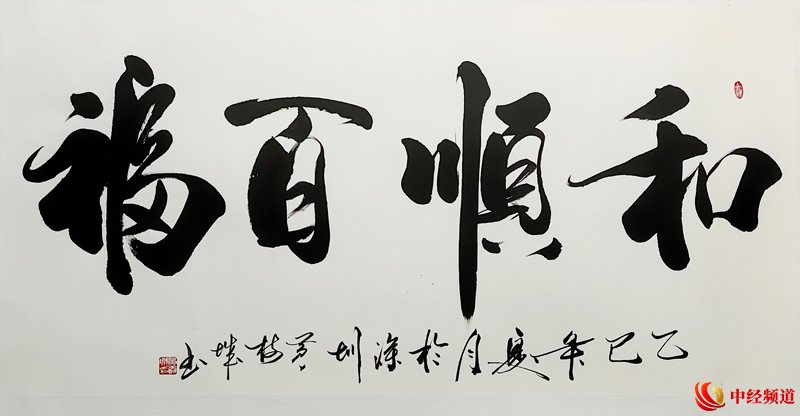 和順百福
乙巳年夏月於深圳
中经频道